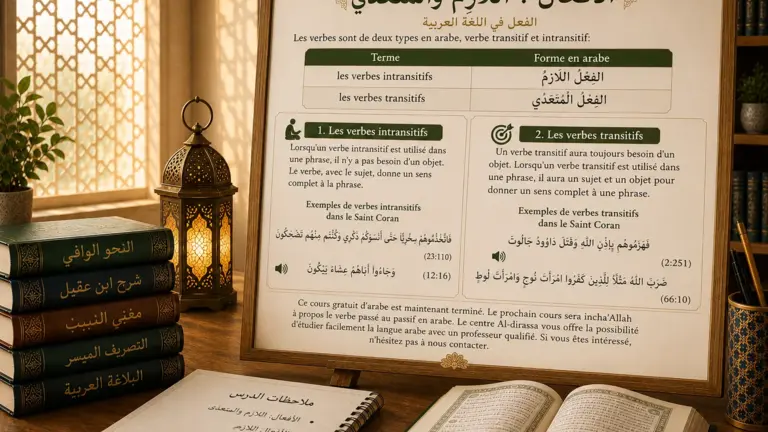 الأفعال : اللازم والمتعدي
الفعل في اللغة العربية
Les verbes sont de deux types en arabe, verbe transitif et intransitif:
Terme
Forme en arabe
les verbes intransitifs
الفِعْلُ اللَازِمُ
les verbes transitifs
الفِعْلُ الْمُتَعَدُي
1. Les verbes intransitifs
Lorsqu'un verbe intransitif est utilisé dans
une phrase, il n'y a pas besoin d'un objet.
Le verbe, avec le sujet, donne un sens
complet à la phrase.
Exemples de verbes intransitifs
dans le Saint Coran
(23:110)
وَجَاءُوا أَبَاهُمْ عِشَاءً يَبْكُونَ
(12:16)
2. Les verbes transitifs
Un verbe transitif aura toujours besoin d'un
objet. Lorsqu'un verbe transitif est utilisé dans
une phrase, il aura un sujet et un objet pour
donner un sens complet à une phrase.
Exemples de verbes transitifs
dans le Saint Coran
فَهَزَمُوهُم بِإِذْنِ اللَّهِ وَقَتَلَ دَاوُودُ جَالُوتَ
(2:251)
ضَرَبَ اللَّهُ مَثَلًا لِلَّذِينَ كَفَرُوا امْرَأَتَ نُوحٍ وَامْرَأَتَ لُوطٍ
(66:10)
Ce cours gratuit d'arabe est maintenant terminé. Le prochain cours sera incha'Allah
à propos le verbe passé au passif en arabe. Le centre Al-dirassa vous offre la possibilité
d'étudier facilement la langue arabe avec un professeur qualifié. Si vous êtes intéressé,
n'hésitez pas à nous contacter.
النحو الوافي
شرح ابن عقيل
مغني النبيب
التصريف الميسر
البلاغة العربية
ملاحظات الدرس
• الأفعال: اللازم والمتعدى